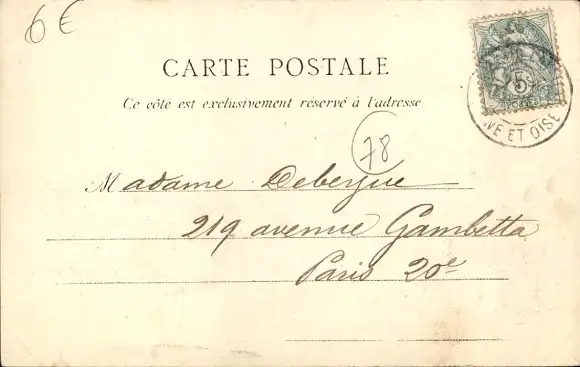 6 €
CARTE POSTALE
Ce côté est exclusivement réservé à l'adresse
5
ET OISE
78
Madame Debergue
219 avenue Gambetta
Paris 20e